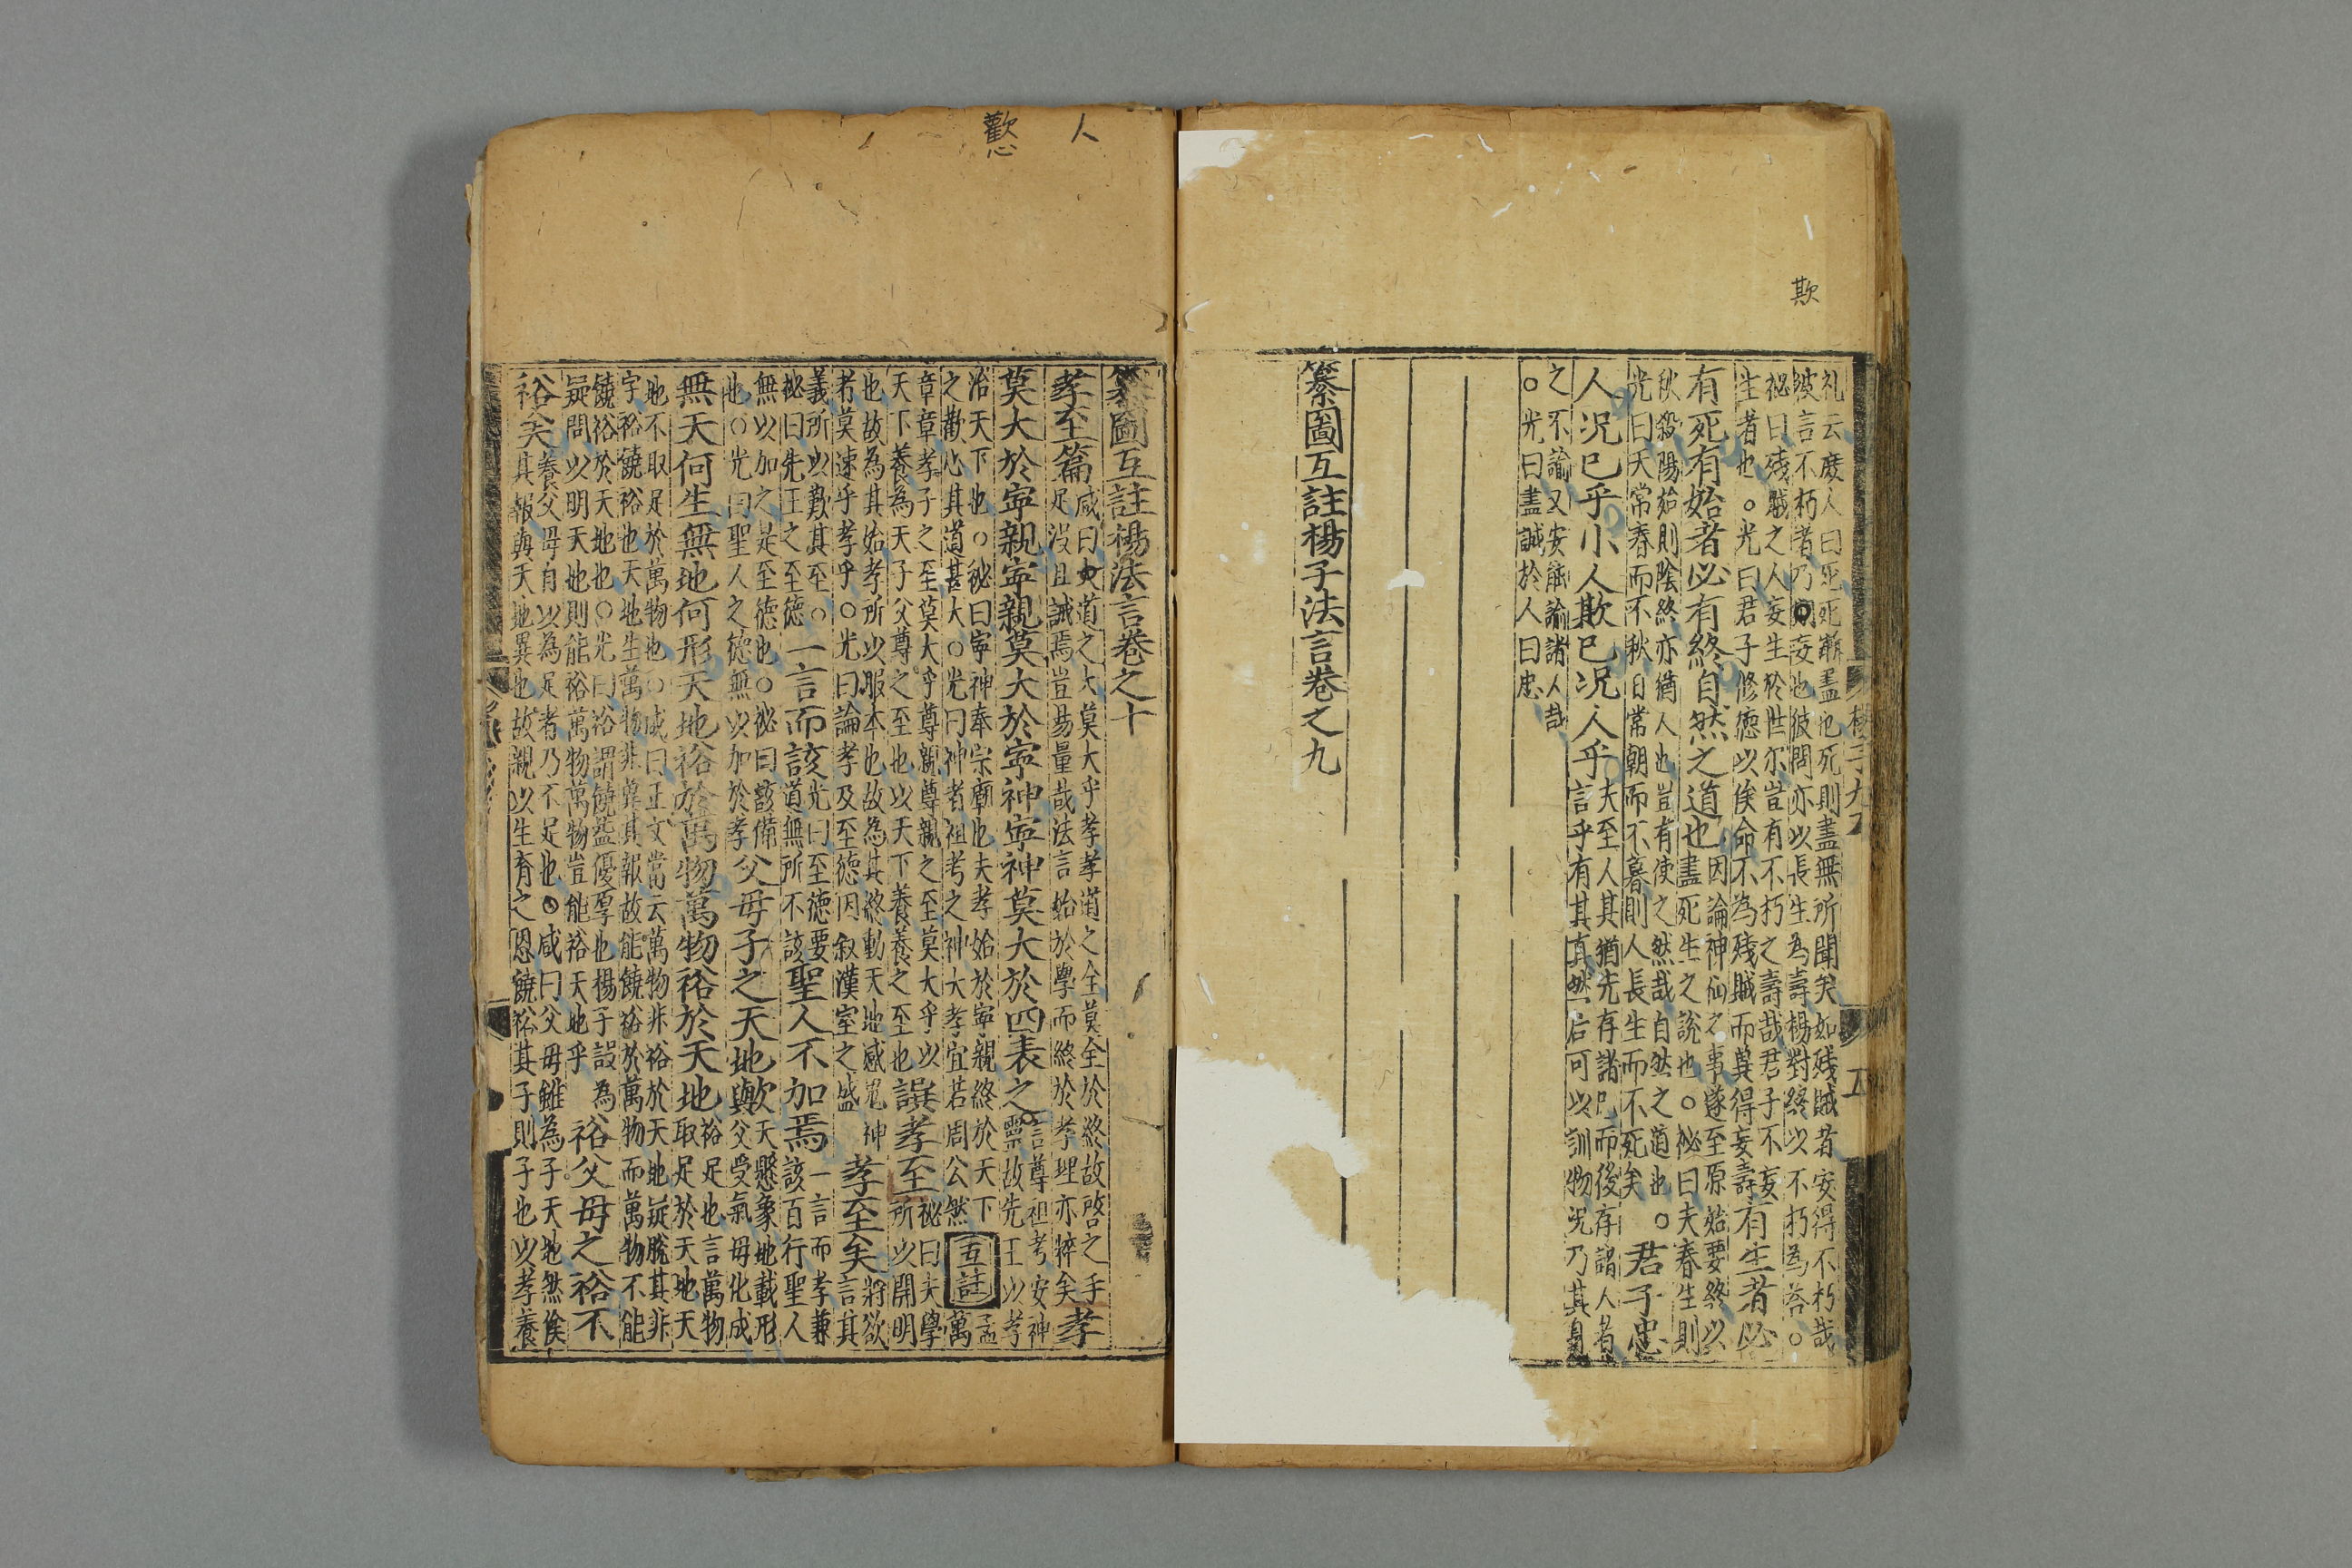 欺
礼云庶人曰死死澌盡也死則盡無所聞矣如殘賊者安得不朽哉
彼言不朽者乃妄也彼問亦以長生為壽楊對終以不朽為荅○
祕曰殘賊之人妄生於世尔豈有不朽之壽哉君子不妄
生者也○光曰君子修德以俟命不為殘賊而冀得妄壽有生者必
有死有始者必有終自然之道也
因論神仙之事遂至原始要終以
盡死生之說也○祕曰夫春生則
秋殺陽始則陰終亦猶人也豈有使之然哉自然之道也○
光曰天常春而不秋日常朝而不暮則人長生而不死矣
君子忠
人況己乎小人欺己況人乎
夫至人其猶先存諸己而後存諸人者
言乎有其真然后可以訓物況乃其身
之不諭又安能諭諸人哉
○光曰盡誠於人曰忠
纂圖互註楊子法言卷之九
人
歡心
纂圖互註楊法言卷之十
孝至篇
咸曰夫道之大莫大乎孝孝道之全莫全於終故啓之手
足沒且誠焉豈易量哉法言始於學而終於孝理亦粹矣
孝
莫大於寧親寧親莫大於寧神寧神莫大於四表之
言尊祖考安神
靈故先王以孝
治天下也○祕曰寧神奉宗廟也夫孝始於寧親終於天下
之歡心其道甚大○光曰神者祖考之神大孝宜若周公然
互註
孟
萬
章章孝子之至莫大乎尊親尊親之至莫大乎以
天下養為天子父尊之至也以天下養養之至也
譔孝至
祕曰夫學
所以開明
也故為其始孝所以服本也故為其終動天地感鬼神
者莫速乎孝乎○光曰論孝及至德因叙漢室之盛
孝至矣
將欲
言其
義所以歎其至○
祕曰先王之至德
一言而該
光曰至德要
道無所不該
聖人不加焉
一言而孝兼
該百行聖人
無以加之是至德也○祕曰該備
也○光曰聖人之德無以加於孝
父母子之天地歟
天懸象地載形
父受氣母化成
無天何生無地何形天地裕於萬物萬物裕於天地
裕足也言萬物
取足於天地天
地不取足於萬物也○咸曰正文當云萬物非裕於天地疑脫其非
字裕饒裕也天地生萬物非冀其報故能饒裕於萬物而萬物不能
饒裕於天地也○光曰裕謂饒益優厚也楊子設為
疑問以明天地則能裕萬物萬物豈能裕天地乎
裕父母之裕不
裕矣
養父母自以為足者乃不足也○咸曰父母雖為子天地然俟
其報與天地異也故親以生育之恩饒裕其子則子也以孝養